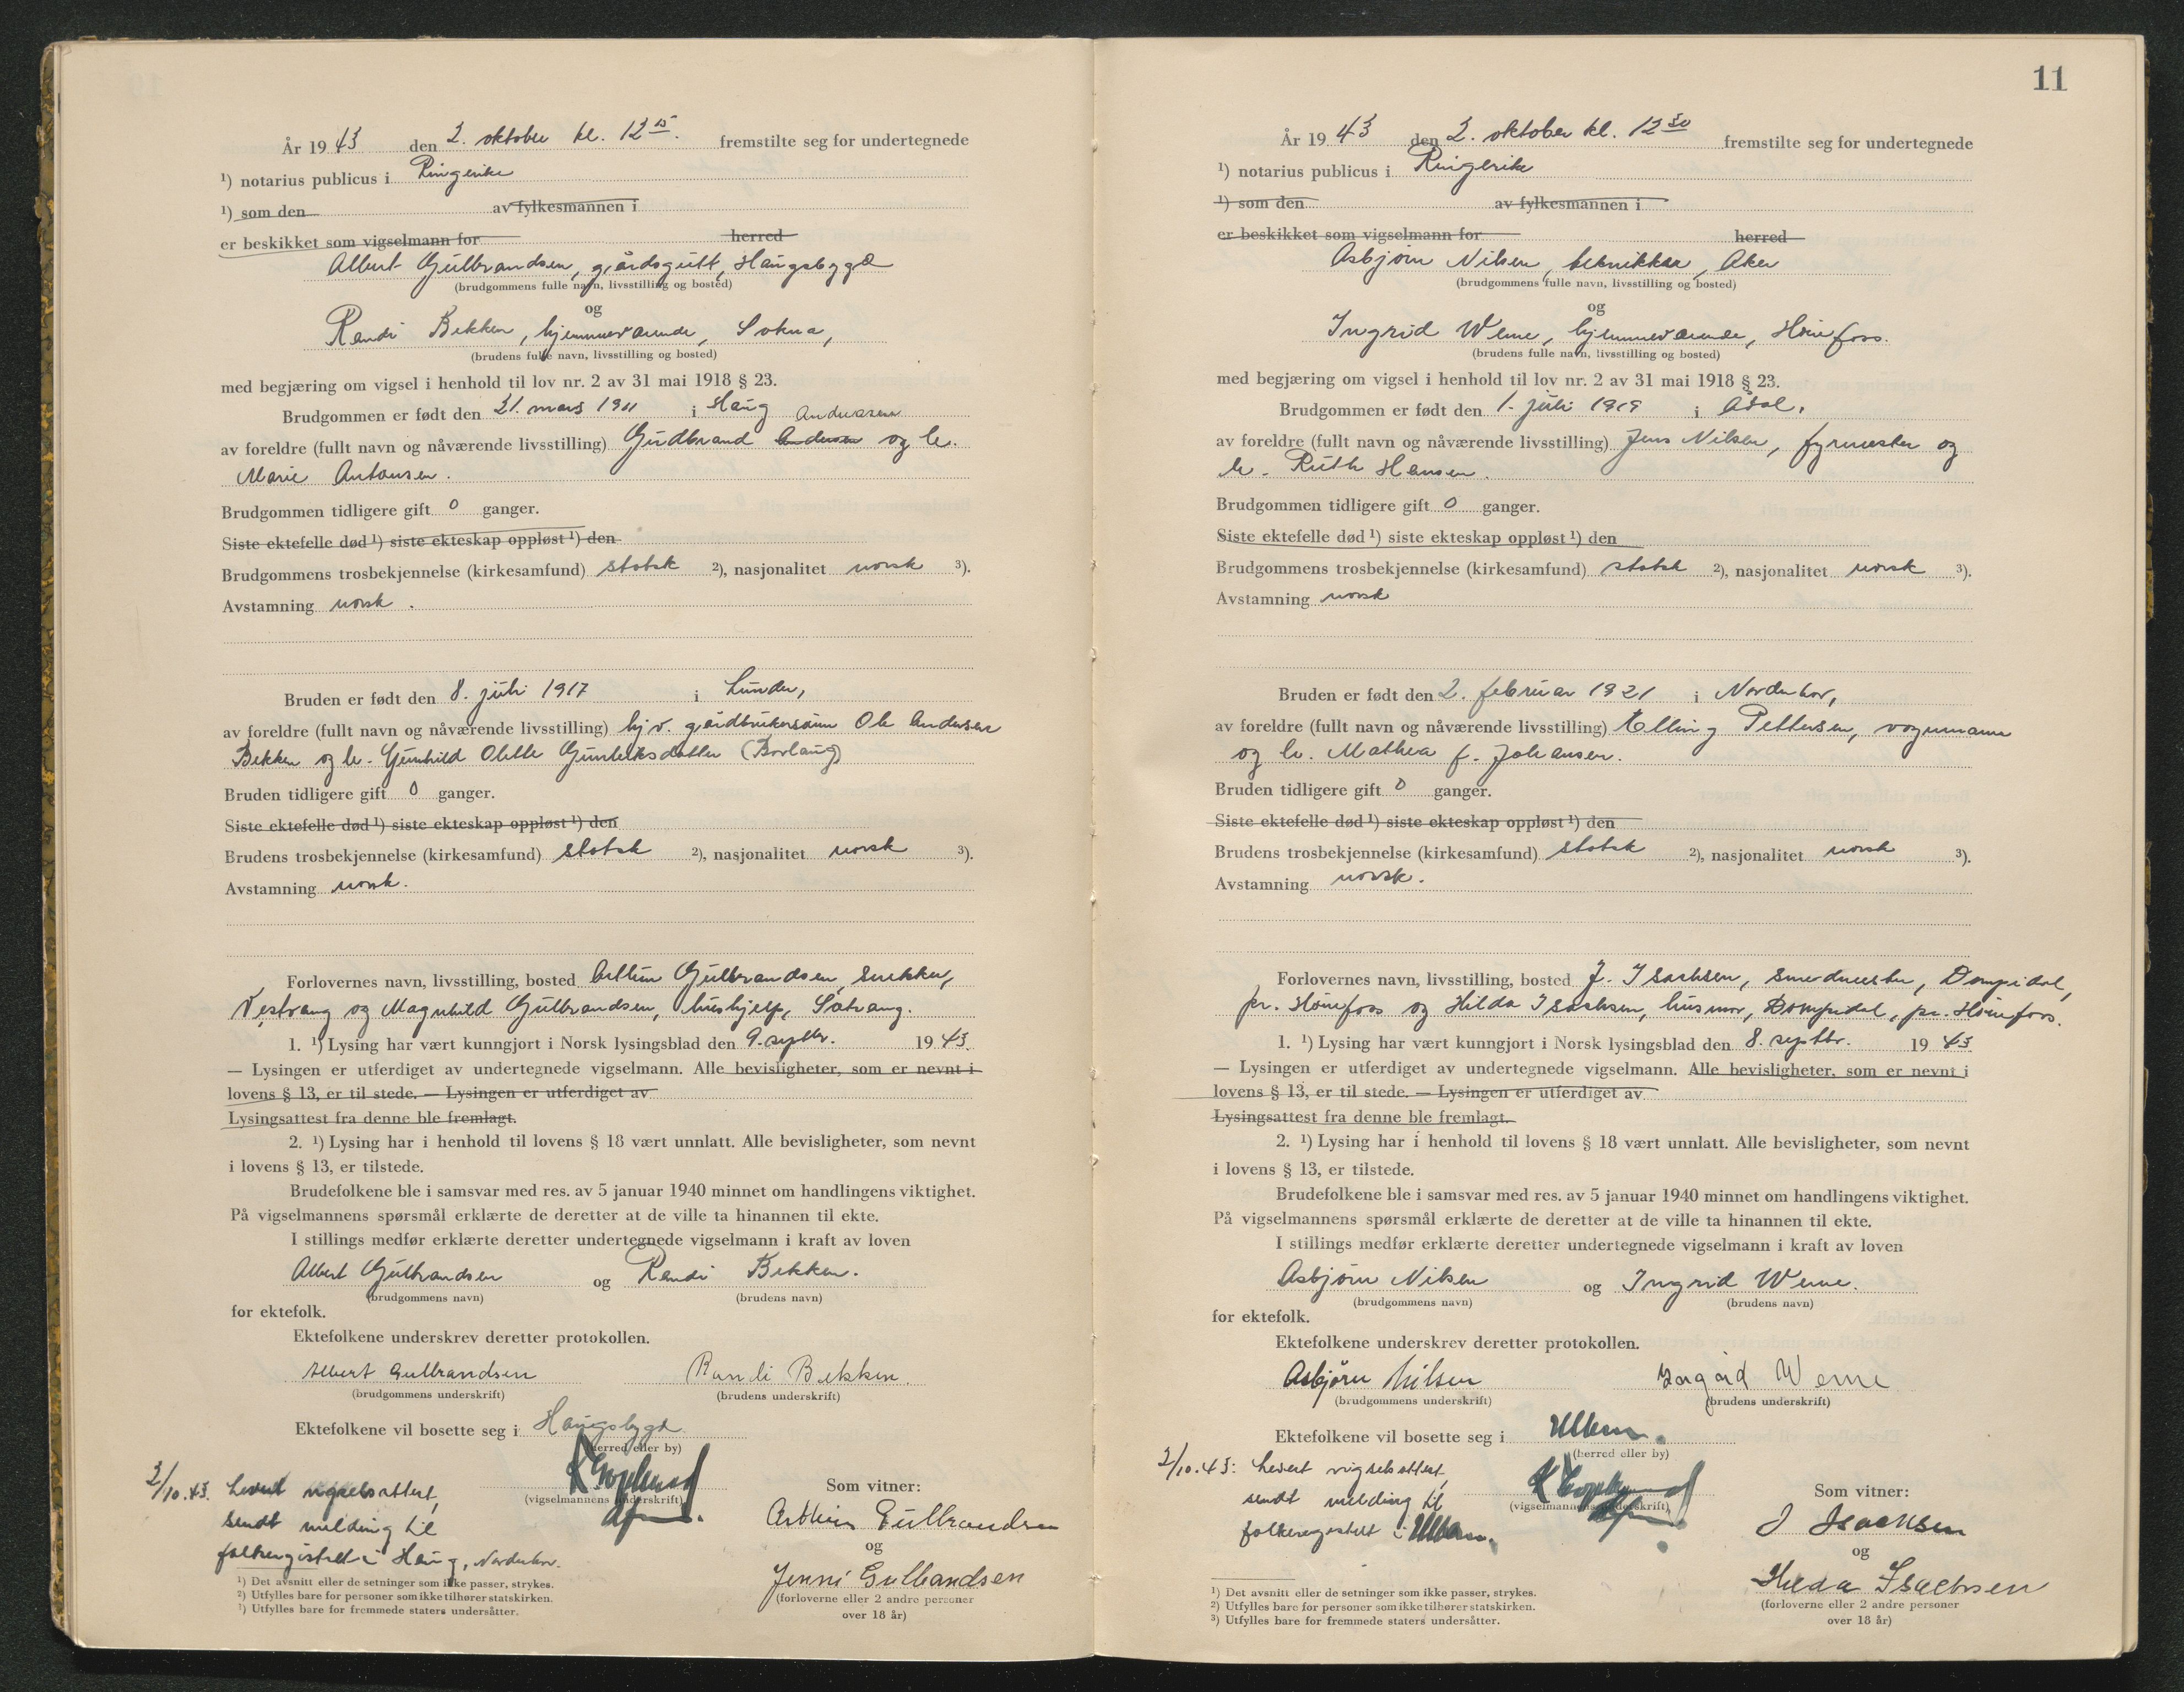 År 19 43 den 2. oktober kl. 12 15. fremstilte seg for undertegnede
¹) notarius publicus i Ringerike
¹) som den av fylkesmannen i
er beskikket som vigselmann for herred
Albert Gulbrandsen, gårdsgutt, Haugsbygd
(brudgommens fulle navn, livsstilling og bosted)
og
Randi Bekken, hjemmeværende, Sokna,
(brudens fulle navn, livsstilling og bosted)
med begjæring om vigsel i henhold til lov nr. 2 av 31 mai 1918 § 23.
Brudgommen er født den 21. mars 1911 i Haug
Andreassen
av foreldre (fullt navn og nåværende livsstilling) Gudbrand Andersen og h.
Marie Antonsen.
Brudgommen tidligere gift 0 ganger.
Siste ektefelle død ¹) siste ekteskap oppløst ¹) den
Brudgommens trosbekjennelse (kirkesamfund) statsk ²), nasjonalitet norsk ³).
Avstamning norsk.
Bruden er født den 8. juli 1917 i Lunder,
av foreldre (fullt navn og nåværende livsstilling) hjv. gårdbrukersønn Ole Andersen
Bekken og h. Gunhild Olette Gunleiksdatter (Borlaug)
Bruden tidligere gift 0 ganger.
Siste ektefelle død ¹) siste ekteskap oppløst ¹) den
Brudens trosbekjennelse (kirkesamfund) statsk ²), nasjonalitet norsk ³).
Avstamning norsk.
Forlovernes navn, livsstilling, bosted Arthur Gulbrandsen, snekker,
Vestvang og Magnhild Gulbrandsen, hushjelp, Satrang.
1. ¹) Lysing har vært kunngjort i Norsk lysingsblad den 9. septbr. 19 43
— Lysingen er utferdiget av undertegnede vigselmann. Alle bevisligheter, som er nevnt i
lovens § 13, er til stede. — Lysingen er utferdiget av
Lysingsattest fra denne ble fremlagt.
2. ¹) Lysing har i henhold til lovens § 18 vært unnlatt. Alle bevisligheter, som nevnt
i lovens § 13, er tilstede.
Brudefolkene ble i samsvar med res. av 5 januar 1940 minnet om handlingens viktighet.
På vigselmannens spørsmål erklærte de deretter at de ville ta hinannen til ekte.
I stillings medfør erklærte deretter undertegnede vigselmann i kraft av loven
Albert Gulbrandsen og Randi Bekken.
(brudgommens navn) (brudens navn)
for ektefolk.
Ektefolkene underskrev deretter protokollen.
Albert Gulbrandsen Randi Bekken.
(brudgommens underskrift) (brudens underskrift)
Ektefolkene vil bosette seg i Haugsbygd
(herred eller by)
2/10.43. Levert vigselsattest,
sendt melding til
folkeregistret i Haug, Norderhov.
(vigselmannens underskrift)
Som vitner:
Arthur Gulbrandsen
og
Jenni Gulbrandsen
(forloverne eller 2 andre personer
over 18 år)
¹) Det avsnitt eller de setninger som ikke passer, strykes.
²) Utfylles bare for personer som ikke tilhører statskirken.
³) Utfylles bare for fremmede staters undersåtter.
11
År 19 43 den 2. oktober kl. 12 30 fremstilte seg for undertegnede
¹) notarius publicus i Ringerike
¹) som den av fylkesmannen i
er beskikket som vigselmann for herred
Asbjørn Nilsen, tekniker, Aker
(brudgommens fulle navn, livsstilling og bosted)
og
Ingrid Werne, hjemmeværende, Hønefoss.
(brudens fulle navn, livsstilling og bosted)
med begjæring om vigsel i henhold til lov nr. 2 av 31 mai 1918 § 23.
Brudgommen er født den 1. juli 1919 i Ådal.
av foreldre (fullt navn og nåværende livsstilling) Jens Nilsen, fyrmester og
h. Ruth Hansen.
Brudgommen tidligere gift 0 ganger.
Siste ektefelle død ¹) siste ekteskap oppløst ¹) den
Brudgommens trosbekjennelse (kirkesamfund) statsk ²), nasjonalitet norsk ³).
Avstamning norsk
Bruden er født den 2. februar 1921 i Norderhov,
av foreldre (fullt navn og nåværende livsstilling) Elling Pettersen, vognmann
og h. Mathea f. Johansen.
Bruden tidligere gift 0 ganger.
Siste ektefelle død ¹) siste ekteskap oppløst ¹) den
Brudens trosbekjennelse (kirkesamfund) statsk ²), nasjonalitet norsk ³).
Avstamning norsk.
Forlovernes navn, livsstilling, bosted J. Isachsen, smedmester, Dompidal,
pr. Hønefoss og Hilda Isachsen, husmor, Dompidal, pr. Hønefoss.
1. ¹) Lysing har vært kunngjort i Norsk lysingsblad den 8. septbr. 19 43
— Lysingen er utferdiget av undertegnede vigselmann. Alle bevisligheter, som er nevnt i
lovens § 13, er til stede. — Lysingen er utferdiget av
Lysingsattest fra denne ble fremlagt.
2. ¹) Lysing har i henhold til lovens § 18 vært unnlatt. Alle bevisligheter, som nevnt
i lovens § 13, er tilstede.
Brudefolkene ble i samsvar med res. av 5 januar 1940 minnet om handlingens viktighet.
På vigselmannens spørsmål erklærte de deretter at de ville ta hinannen til ekte.
I stillings medfør erklærte deretter undertegnede vigselmann i kraft av loven
Asbjørn Nilsen og Ingrid Werne.
(brudgommens navn) (brudens navn)
for ektefolk.
Ektefolkene underskrev deretter protokollen.
Asbjørn Nilsen Ingrid Werne
(brudgommens underskrift) (brudens underskrift)
Ektefolkene vil bosette seg i Ullern.
(herred eller by)
2/10.43: Levert vigselsattest,
sendt melding til
folkeregistret i Ullern.
(vigselmannens underskrift)
Som vitner:
J Isachsen
og
Hilda Isachsen
(forloverne eller 2 andre personer
over 18 år)
¹) Det avsnitt eller de setninger som ikke passer, strykes.
²) Utfylles bare for personer som ikke tilhører statskirken.
³) Utfylles bare for fremmede staters undersåtter.